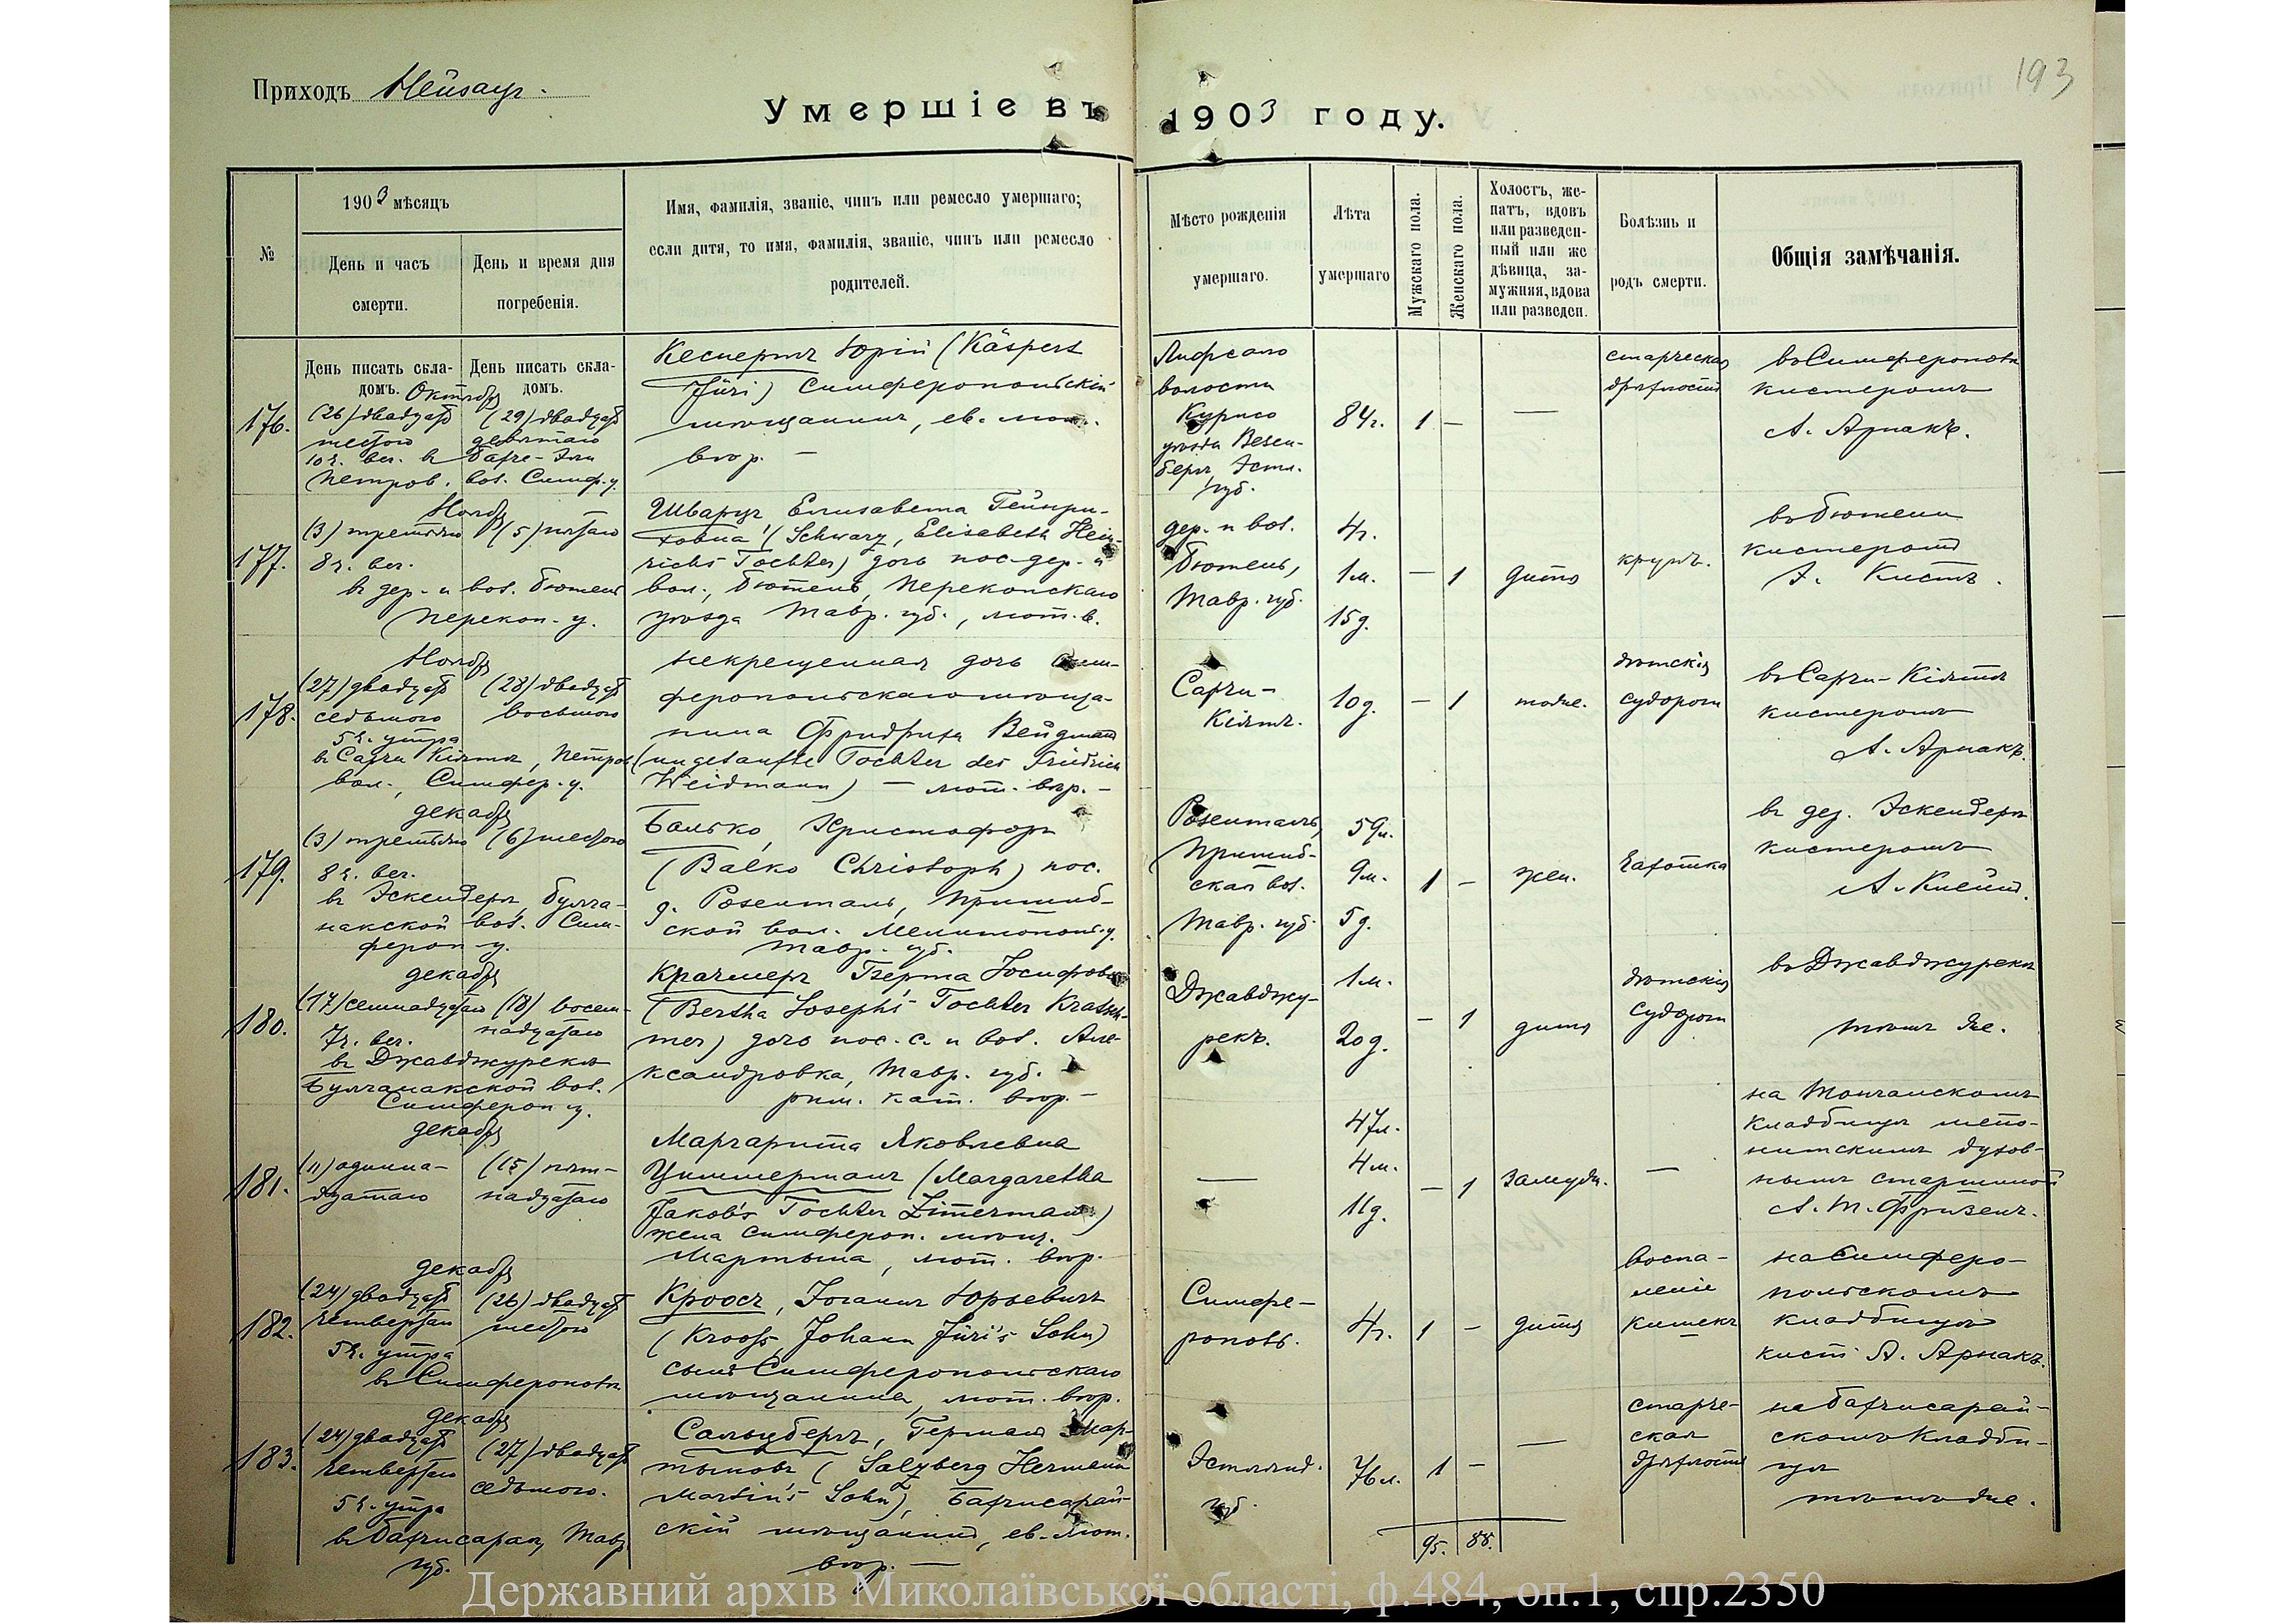 Приходъ Нейзацъ.
193
Умершіе въ 1903 году.
№
1903 мѣсяцъ
День и часъ
смерти.
День и время дня
погребенія.
Имя, фамилія, званіе, чинъ или ремесло умершаго;
если дитя, то имя, фамилія, званіе, чинъ или ремесло
родителей.
Мѣсто рожденія
умершаго.
Лѣта
умершаго
Мужскаго пола.
Женскаго пола.
Холостъ, же-
натъ, вдовъ
или разведен-
ный или же
дѣвица, за-
мужняя, вдова
или разведен.
Болѣзнь и
родъ смерти.
Общія замѣчанія.
День писать скла-
домъ.
День писать скла-
домъ.
176.
Октябр
(26) двадцат
шестого
10 ч. веч. в
Петров.
(29) двадцат
девятаго
Бахче-Эли
вол. Симф. у.
Кеспертъ Юрій (Käspert
Jüri) Симферопольскій
мѣщанинъ, ев. лют.
вѣр. —
волости
уѣзда Везен-
бергъ, Эстл.
губ.
84 г.
1
—
—
старческая
дряхлость
въ Симферополѣ
кистеромъ
А. Арнакъ.
177.
Ноябр
(3) третьяго
8 ч. веч.
в дер. и вол. Бютень
Перекоп. у.
(5) пятаго
Шварцъ Елисавета Гейнри-
ховна (Schwarz, Elisabeth Hein-
richs Tochter) дочь пос. дер. и
вол., Бютень, Перекопскаго
уѣзда Тавр. губ., лют. в.
дер. и вол.
Бютень,
Тавр. губ.
4 г.
1 м.
15 д.
—
1
дитя
крупъ.
въ Бютени
кистеромъ
Кистъ.
178.
Ноябр
(27) двадцат
седьмого
5 ч. утра
в Сарчи Кіятъ, Петров
вол., Симфер. у.
(28) двадцат
восьмого
некрещенная дочь Сим-
феропольскаго мѣща-
нина Фридриха Вейдманъ
(ungetaufte Tochter des Friedrich
Weidmann) — лют. вѣр. —
Сарчи-
Кіятъ.
10 д.
—
1
тоже.
дѣтскія
судороги
въ Сарчи-Кіятѣ
кистеромъ
А. Арнакъ.
179.
декабр
(3) третьяго
8 ч. веч.
в Эскендеръ, Булга-
накской вол. Сим-
фероп. у.
(6) шестого
Балько, Христофоръ
(Balko Christoph) пос.
д. Розенталь, Пришиб-
ской вол. Мелитопол. у.
Тавр. губ.
Розенталь,
Пришиб-
ская вол.
Тавр. губ.
59 л.
9 м.
5 д.
1
—
жен.
чахотка
в дер. Эскендеръ
кистеромъ
180.
декабр
(17) семнадцатаго
7 ч. веч.
в Джавджурекѣ
Булганакской вол.
Симфероп. у.
(18) восем-
надцатаго
Крачмеръ Берта Іосифовна
(Bertha Josephs Tochter Kratsch-
mer) дочь пос. с. и вол. Але-
ксандровка, Тавр. губ.
рим. кат. вѣр. —
Джавджу-
рекъ.
1 м.
20 д.
—
1
дитя
дѣтскія
судороги
въ Джавджурекѣ
тѣмъ же.
181.
декабр
(11) одинна-
дцатаго
(15) пят-
надцатаго
Маргарита Яковлевна
Циммерманъ (Margaretha
Jakob's Tochter Zimerman)
жена Симфероп. мѣщ.
Мартына, лют. вѣр.
—
47 л.
4 м.
11 д.
—
1
замужн.
—
кладбищѣ мено-
нитскимъ духов-
нымъ старшиной
Фризенъ.
182.
декабр
(24) двадцат
четвертаго
5 ч. утра
въ Симферополѣ
(26) двадцат
шестого
Кроосъ, Іоганнъ Юрьевичъ
(Krooss, Johann Jüri's Sohn)
сынъ Симферопольскаго
мѣщанина, лют. вѣр.
Симфе-
рополь.
4 г.
1
—
дитя
воспа-
леніе
кишекъ
на Симферо-
польскомъ
кладбищѣ
кист. А. Арнакъ.
183.
декабр
(24) двадцат
четвертаго
5 ч. утра
въ Бахчисараѣ, Тавр.
губ.
(27) двадцат
седьмого.
Сальцбергъ, Германъ Мар-
тыновъ (Salzberg Hermann
Martin's Sohn), Бахчисарай-
скій мѣщанинъ, ев. лют.
вѣр. —
Эстлянд.
губ.
76 л.
1
—
—
старче-
ская
дряхлость
на Бахчисарай-
скомъ кладби-
щѣ
тѣмъ же.
95.
88.
Державний архів Миколаївської області, ф.484, оп.1, спр.2350